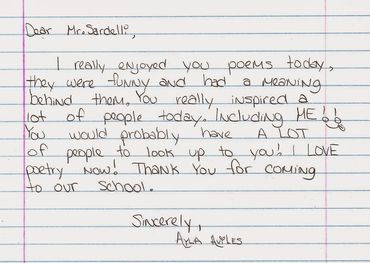 Dear Mr. Sardelli,
I really enjoyed you poems today,
they were funny and had a meaning
behind them. You really inspired a
lot of people today. Including ME!!
You would probably have A LOT
of people to look up to you! I LOVE
poetry now! Thank you for coming
to our school.
Sincerely,
Ayla Aviles